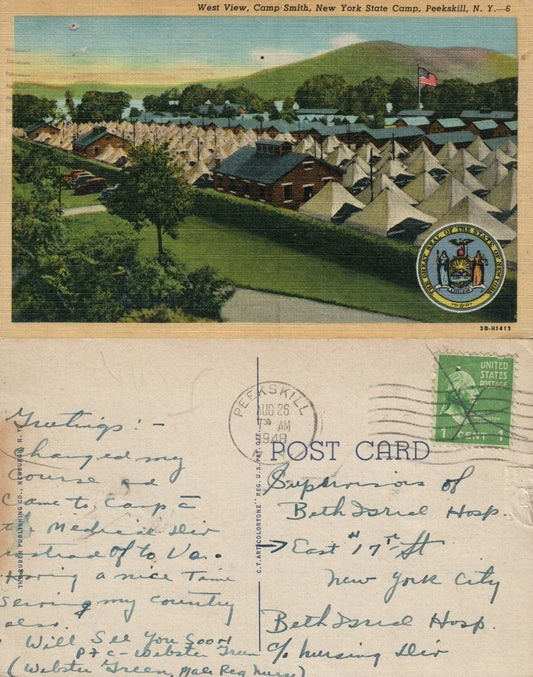 West View, Camp Smith, New York State Camp, Peekskill, N. Y.—6
THE GREAT SEAL OF THE STATE OF NEW YORK
3B-H1413
PEEKSKILL
AUG 26
7 AM
1940
N.Y.
UNITED
STATES
POSTAGE
1 CENT 1
POST CARD
THE RUBEN PUBLISHING CO., NEWBURGH, N. Y.
C.T. ART-COLORTONE" REG. U.S. PAT. OFF.
Greetings: -
Changed my
Course and
Came to Camp c̄
the Medical Div
instead of to Va.
Having a nice Time
Serving my Country
also.
Will See You Soon
Pvt C - Webster Green
(Webster Green, Male Reg Nurse)
Supervisors of
Beth Israel Hosp.
→ East "17" St
New York City
Beth Israel Hosp.
c/o Nursing Div